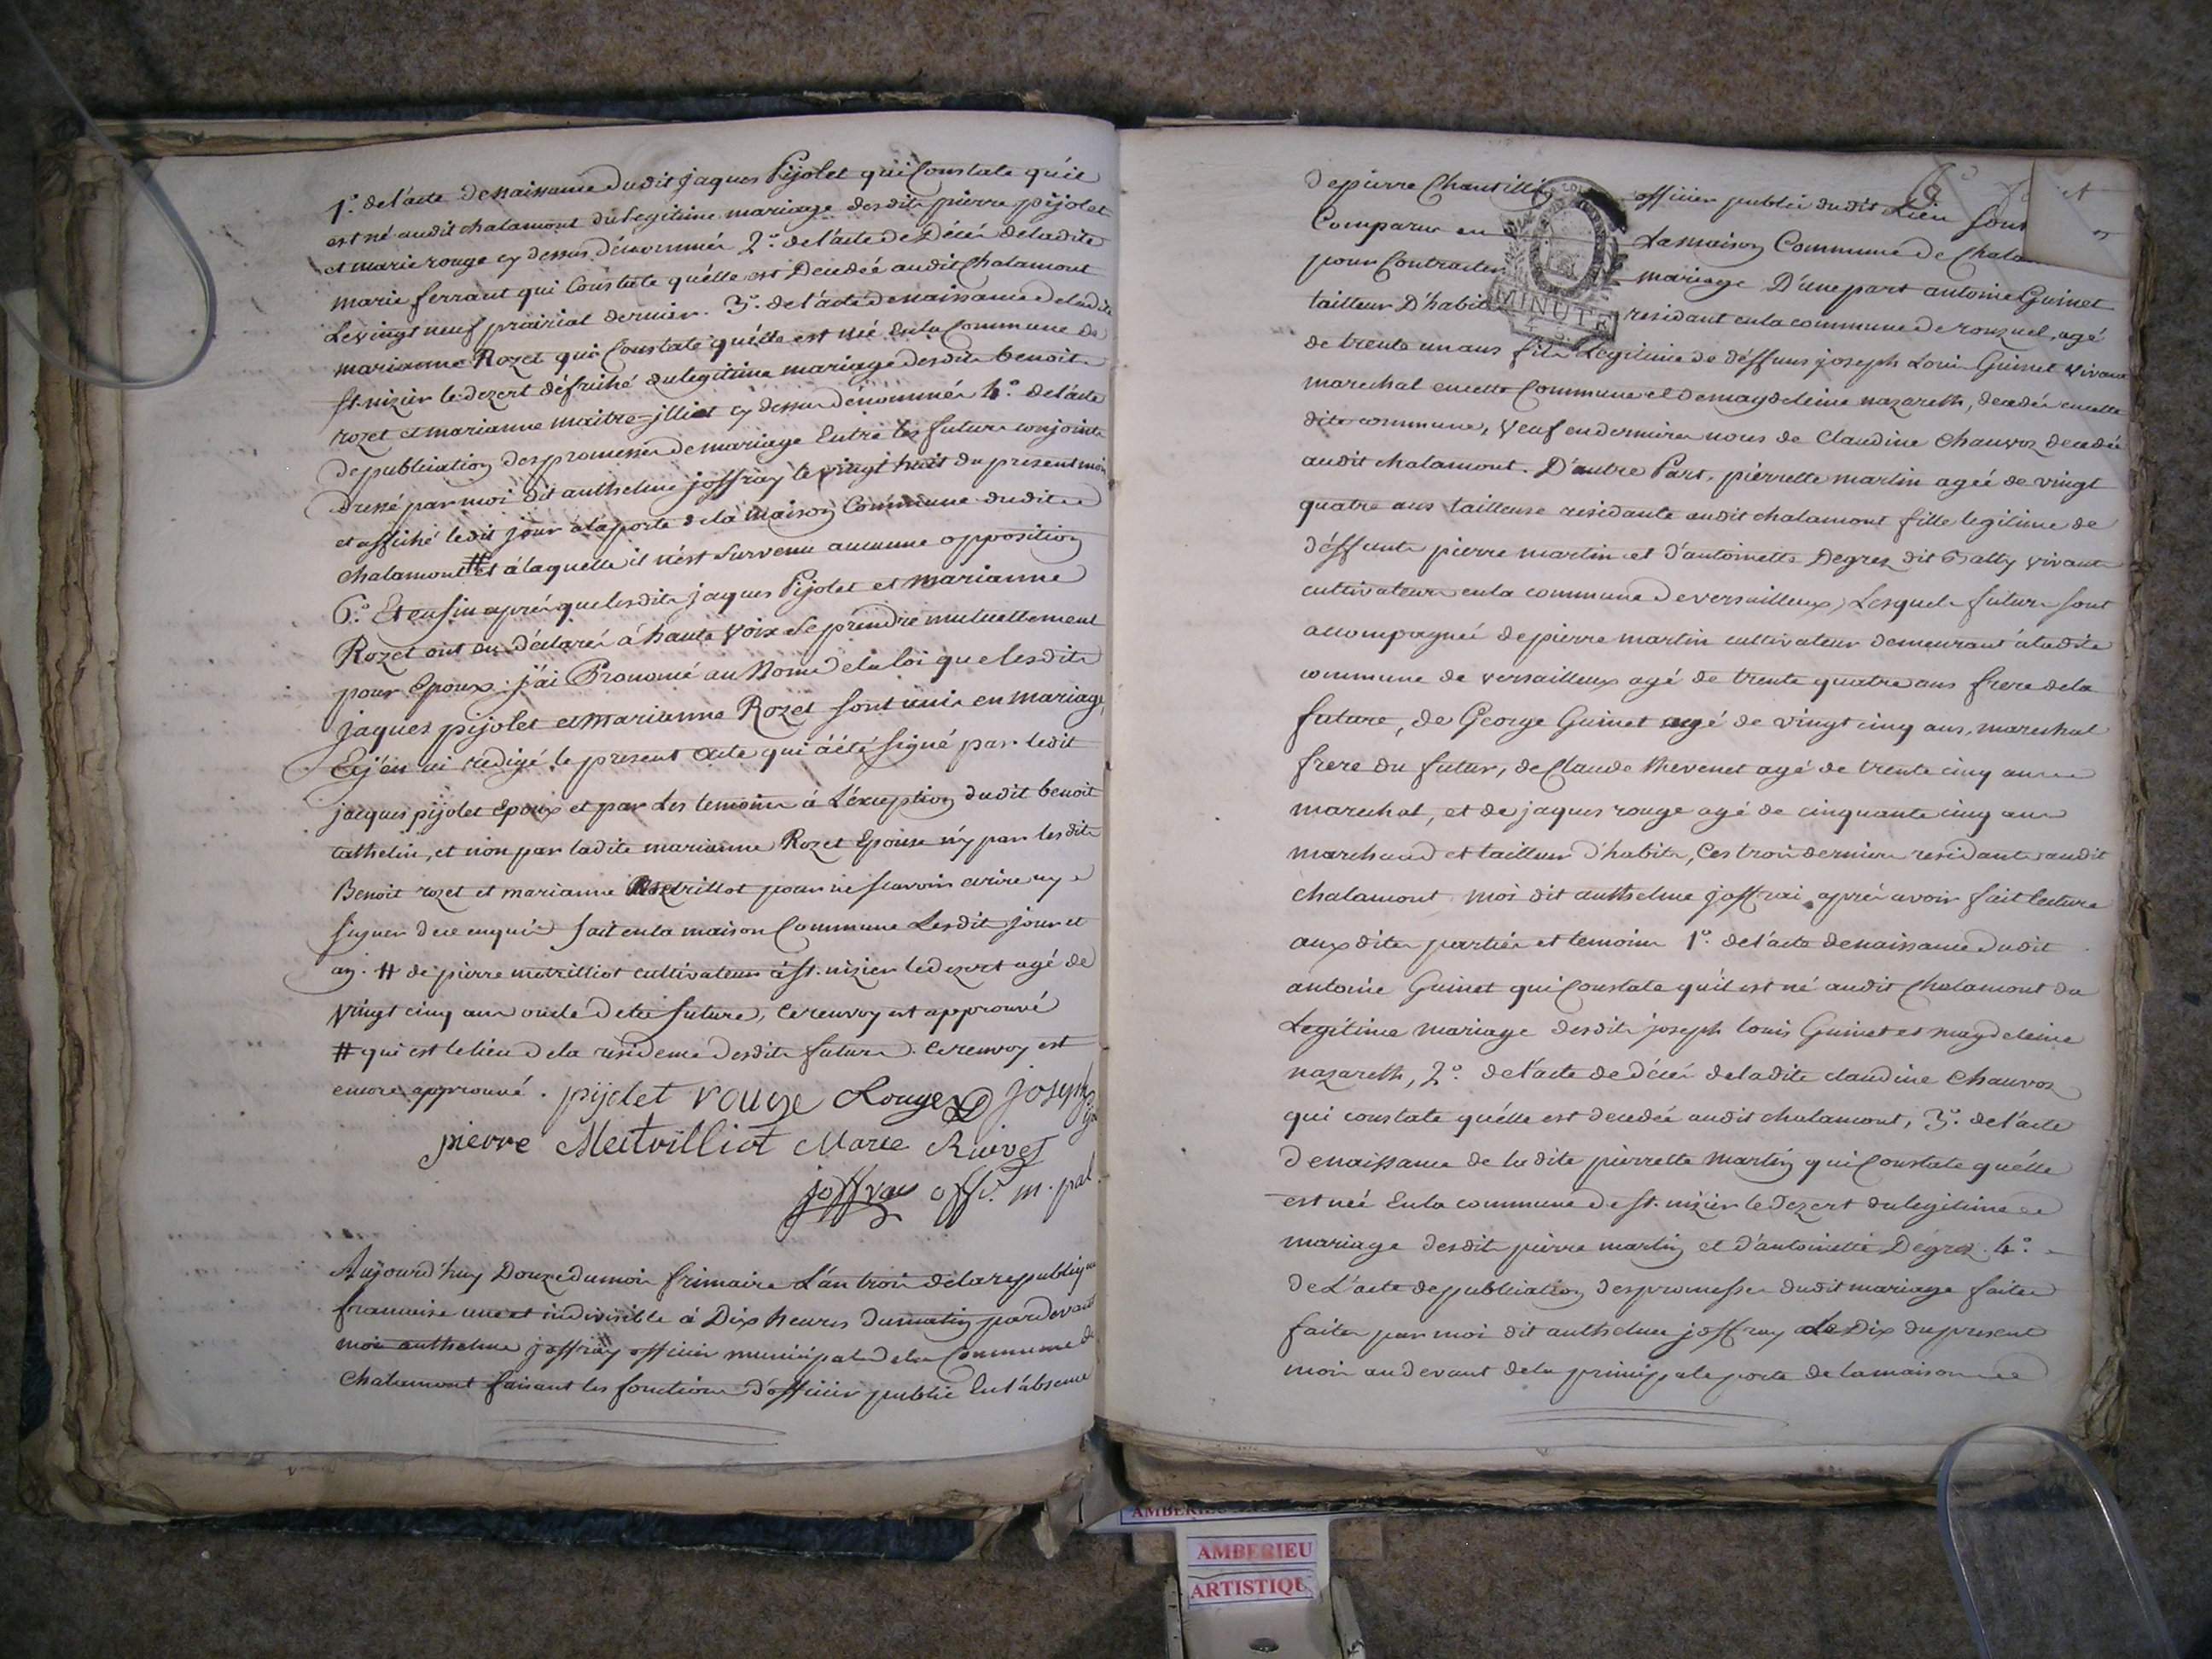 1.° de l'acte de naissance dudit jaques Pijolet qui Constate qu'il
est né audit chalamont du legitime mariage desdits pierre pijolet
et marie rouge cy dessus dénommés 2.° de l'acte de Décés de ladite
marie ferraut qui Constate qu'elle est Decedée audit Chalamont
Le vingt neuf prairial dernier. 3.° de l'acte de naissance de ladite
marianne Rozet qui Constate qu'elle est née En la Commune de
st. nizier le dezert défriché du legitime mariage desdits benoit
rozet et marianne maitre-jlliot cy dessus dénommés 4.° de l'acte
de publication des promesses de mariage Entre les futurs conjoints
dressé par moi dit anthelme joffray le vingt huit du present mois
et affiché ledit jour à la porte de la maison Commune dudit
chalamont # et à laquelle il n'est Survenu aucunne opposition
6.° Et enfin aprés que lesdits jaques Pijolet et marianne
Rozet ont eu déclaré à haute voix se prendre mutuellement
pour Epoux. j'ai Prononcé au Nom de la loi que lesdits
jaques pijolet et marianne Rozet sont unis en mariage,
Et j'en ai redigé le present acte qui à été signé par ledit
jacques pijolet Epoux et par Les temoins à L'exception dudit benoit
tathelin, et non par ladite marianne Rozet Epouse n'y par lesdits
Benoit rozet et marianne pour ne scavoir ecrire ny
signer de ce enquis fait en la maison Commune Lesdits jour et
an. # de pierre metrilliot cultivateur à st. nizier le dezert agé de
vingt cinq ans oncle de la future, ce renvoy est approuvé
# qui est le lieu de la residence desdits futurs. ce renvoy est
encore approuvé. pijolet rouge Rouge joseph
pierre Meitrilliot Marie Ruivet
joffray off. m.pal.
Aujourd'huy Douze du mois frimaire L'an trois de la republique
francaise une et indivisible à Dix heures du matin pardevant
moi anthelme joffray officier municipal de la Commune de
Chalamont faisant les fonctions d'officier public En l'absence
de pierre Chantilly officier public dudit Lieu sont
Comparus en La maison Commune de Chala
pour Contracter mariage D'une part antoine Guinet
tailleur D'habit residant en la commune de ronzuel, agé
MINUTE
de trente un ans fils Legitime de déffuns joseph Louis Guinet vivant
marechal en cette Commune et de magdeleine nazareth, decedés en cette
dite commune, veuf en dernieres nous de Claudine Chauvoz decedée
audit chalamont. D'autre Part, pierrette martin agée de vingt
quatre ans tailleuse residante audit chalamont fille legitime de
déffunts pierre martin et d'antoinette Degrez dit Batty vivants
cultivateurs en la commune de versailleux, Lesquels futurs sont
accompagnés de pierre martin cultivateur demeurant à ladite
commune de versailleux agé de trente quatre ans frere de la
future, de George Guinet agé de vingt cinq ans, marechal
frere du futur, de Claude thevenet agé de trente cinq ans
marechal, et de jaques rouge agé de cinquante cinq ans
marchand et tailleur d'habits, Ces trois derniers residants audit
chalamont moi dit anthelme joffrai aprés avoir fait lecture
aux dites parties et temoins 1.° de l'acte de naissance dudit
antoine Guinet qui Constate qu'il est né audit Chalamont du
Legitime mariage desdits joseph louis Guinet et magdeleine
nazareth, 2.° de l'acte de décés de ladite claudine Chauvoz
qui constate qu'elle est decedée audit chalamont, 3.° de l'acte
de naissance de ladite pierrette martin qui Constate qu'elle
est née En la commune de st. nizier le Dezert du legitime
mariage desdits pierre martin et d'antoinette Degrez. 4.°
de L'acte de publication des promesses dudit mariage faites
faites par moi dit anthelme joffray Le Dix du present
mois au devant de la principale porte de la maison
AMBERIEU
ARTISTIQU